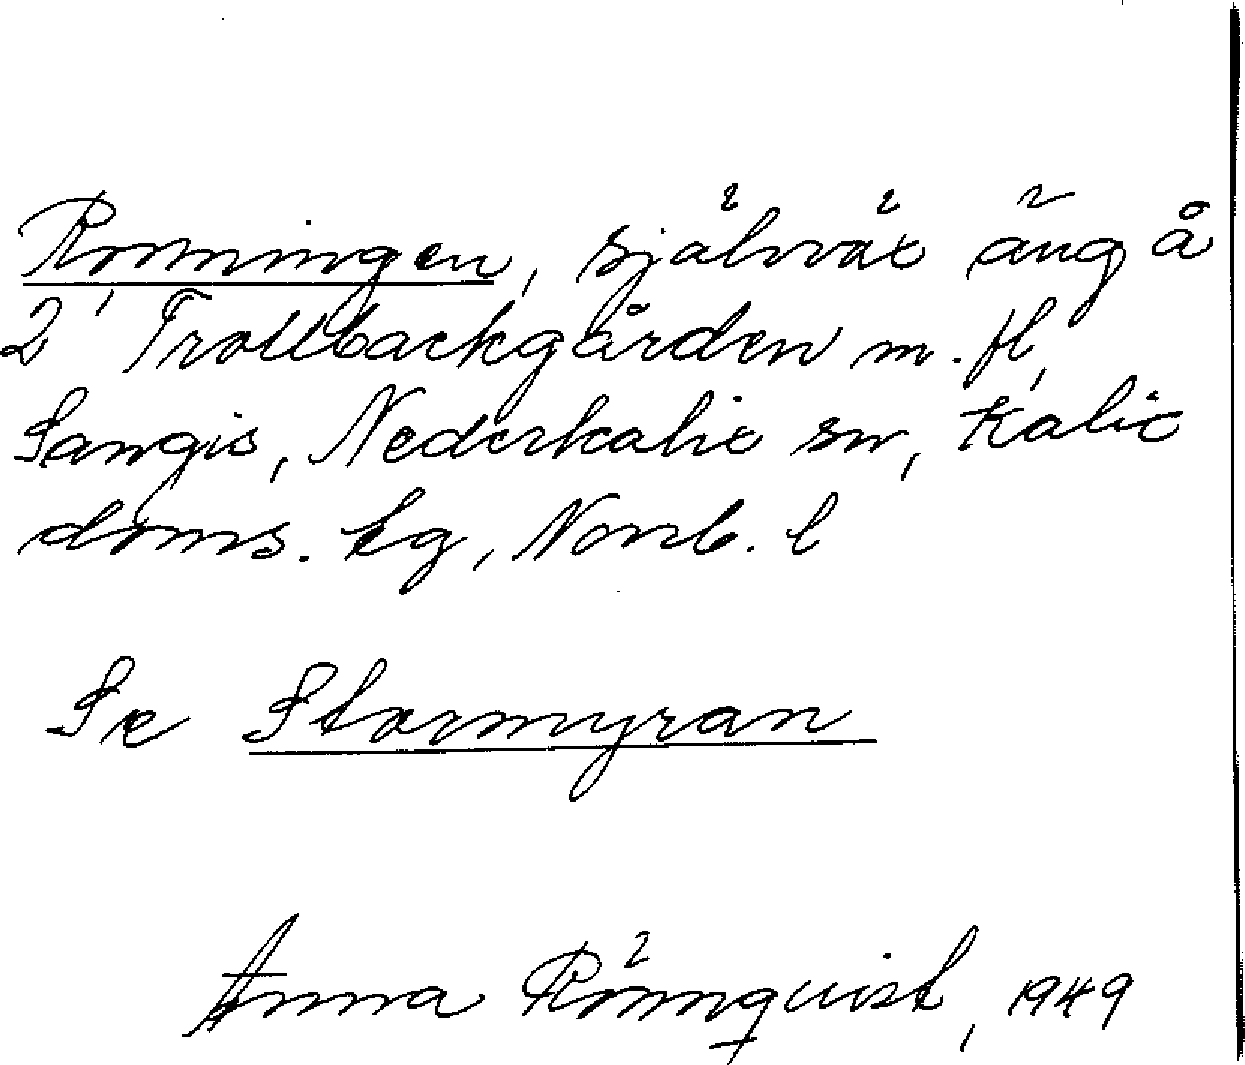 Ronningen, självväx äng å
2, Trollbackgården m. fl,
Sangis, Nederkalix sn, Kalix
doms. sg, Norrb. l
Se Stormyran
Anna Rönnqvist, 1949